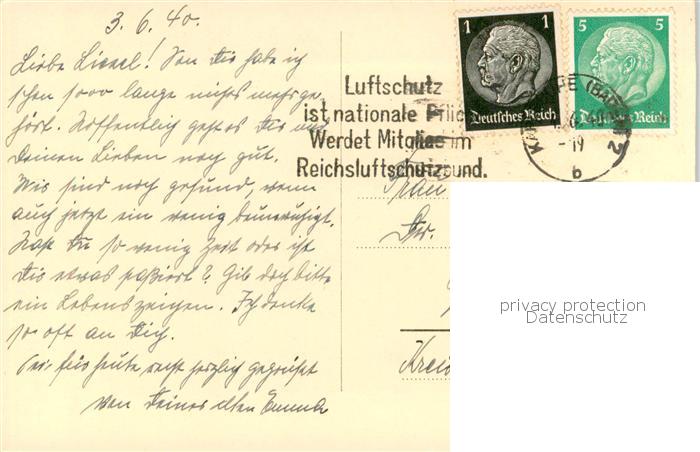 3.6.40.
Liebe Liesel! Von Dir habe ich
schon sooo lange nichts mehr ge-
hört. Hoffentlich geht es Dir und
Deinen Lieben noch gut.
Wir sind noch gesund, wenn
auch jetzt ein wenig beunruhigt.
Hast Du so wenig Zeit oder ist
Dir etwas passiert? Gib doch bitte
ein Lebenszeichen. Ich denke
so oft an Dich.
Sei für heute recht herzlich gegrüßt
von Deiner alten Emma
1
Deutsches Reich
5
Deutsches Reich
Luftschutz
ist nationale Pflic
Werdet Mitglied im
Reichsluftschutzbund.
-19
b
2
Frau
Dr.
Kreis
privacy protection
Datenschutz